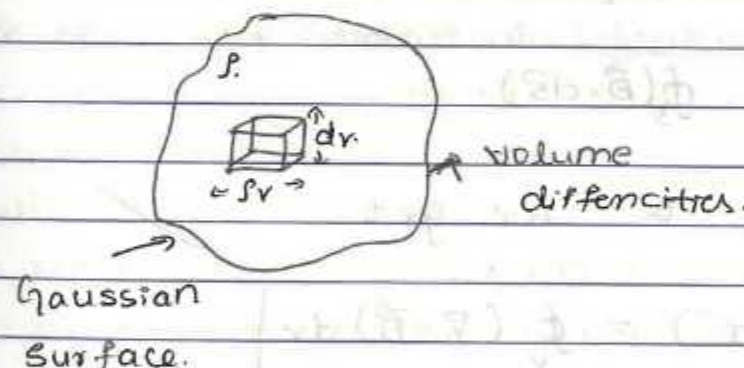 ρ.
dv.
← ρv →
volume
diffencities.
Gaussian
surface.